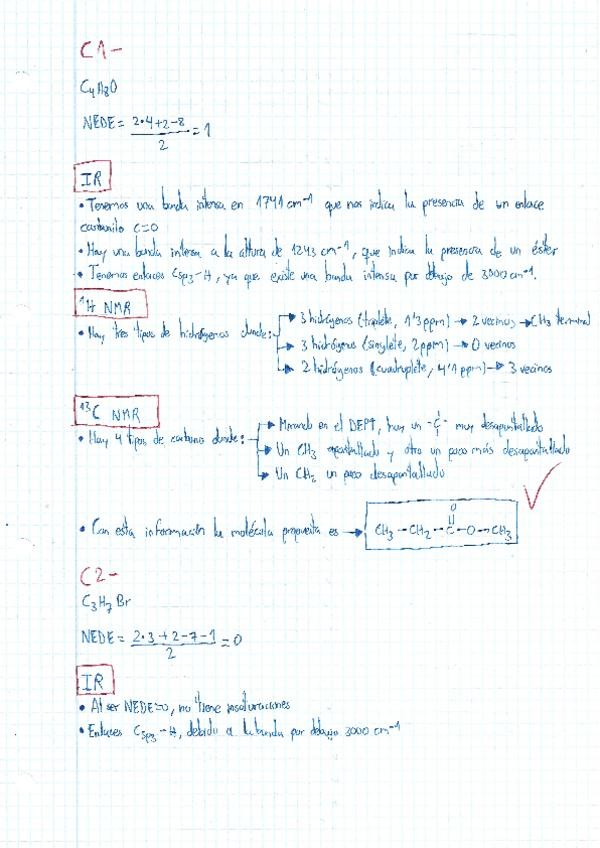 C1-
C4H8O
NEDE = 2·4+2-8 / 2 = 1
IR
• Tenemos una banda intensa en 1741 cm⁻¹ que nos indica la presencia de un enlace
carbonilo C=O
• Hay una banda intensa a la altura de 1243 cm⁻¹, que indica la presencia de un éster
• Tenemos enlaces Csp3-H, ya que existe una banda intensa por debajo de 3000 cm⁻¹.
¹H NMR
• Hay tres tipos de hidrógenos donde:
3 hidrógenos (triplete, 1'3 ppm) → 2 vecinos → CH3 terminal
3 hidrógenos (singlete, 2ppm) → 0 vecinos
2 hidrógenos (cuadruplete, 4'1 ppm) → 3 vecinos
¹³C NMR
• Hay 4 tipos de carbono donde:
Mirando en el DEPT, hay un -C- muy desapantallado
Un CH3 apantallado y otro un poco más desapantallado
Un CH2 un poco desapantallado
• Con esta información la molécula propuesta es →
O
CH3-CH2-C-O-CH3
C2-
C3H7Br
NEDE = 2·3+2-7-1 / 2 = 0
IR
• Al ser NEDE=0, no tiene insaturaciones
• Enlaces Csp3-H, debido a la banda por debajo 3000 cm⁻¹